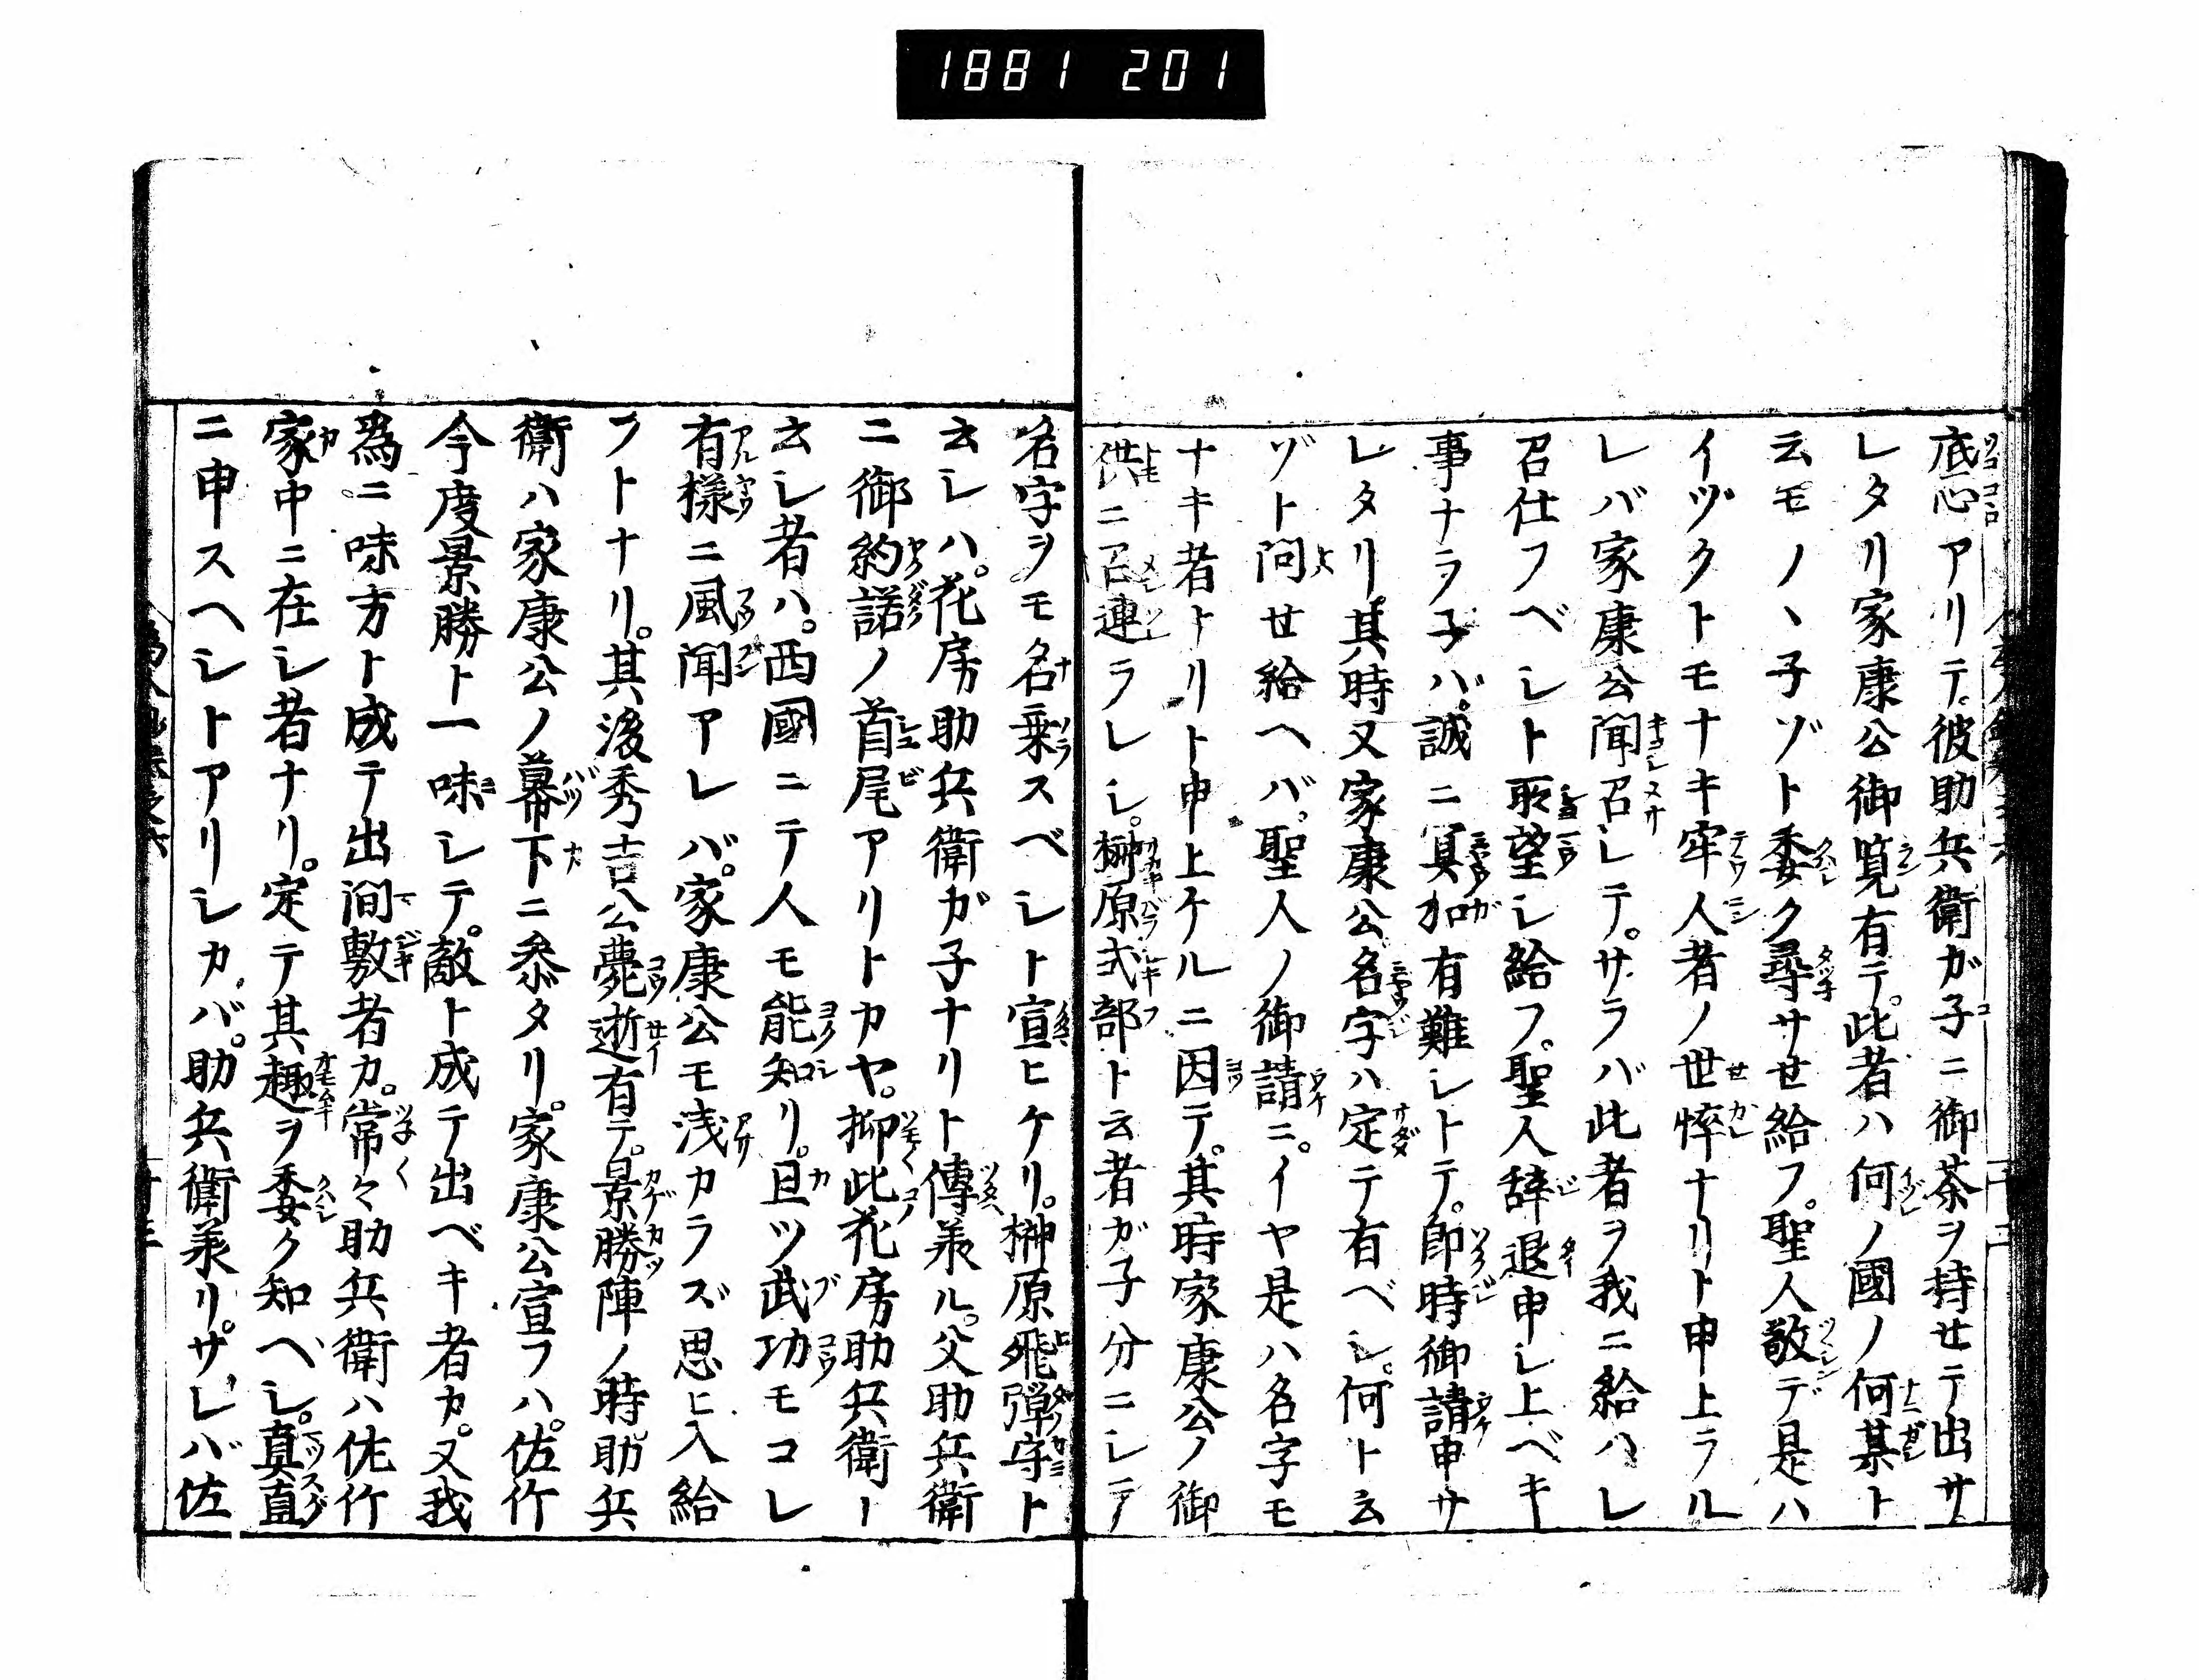 1881 201
底心アリテ。彼助兵衛ガ子ニ御茶ヲ持せテ出サ
レタリ家康公御覧有テ。此者ハ何ノ國ノ何某ト
云モノヽ子ゾト委ク尋サせ給フ。聖人敬デ是ハ
イヅクトモナキ牢人者ノ世悴ナリト申上ラル
レバ家康公聞召レテ。サラバ此者ヲ我ニ給ハレ
召仕フベシト所望シ給フ。聖人辞退申シ上ベキ
事ナラ子バ。誠ニ冥加有難シトテ。即時御請申サ
レタリ。其時又家康公名字ハ定テ有ベシ。何ト云
ゾト問せ給ヘバ。聖人ノ御請ニ。イヤ是ハ名字モ
ナキ者トリト申上ケルニ因テ。其時家康公ノ御
供ニ召連ラレシ。榊原式部ト云者ガ子分ニシテ
名字ヲモ名乗スベシト宣ヒケリ。榊原飛弾守ト
云シハ。花房助兵衛ガ子ナリト傳来ル。父助兵衛
ニ御約諾ノ首尾アリトカヤ。抑此花房助兵衛ト
云シ者ハ。西國ニテ人モ能知リ。且ツ武功モコレ
有様ニ風聞アレバ。家康公モ浅カラズ思ヒ入給
フトナリ。其後秀吉公薨逝有テ。景勝陣ノ時。助兵
衛ハ家康公ノ幕下ニ参タリ。家康公宣フハ。佐竹
今度景勝ト一味シテ。敵ト成テ出ベキ者カ。又我
為ニ味方ト成テ出間敷者カ。常々助兵衛ハ佐竹
家中ニ在シ者ナリ。定テ其趣ヲ委ク知ヘシ。真直
ニ申スヘシトアリシカバ。助兵衛来リ。サレバ佐